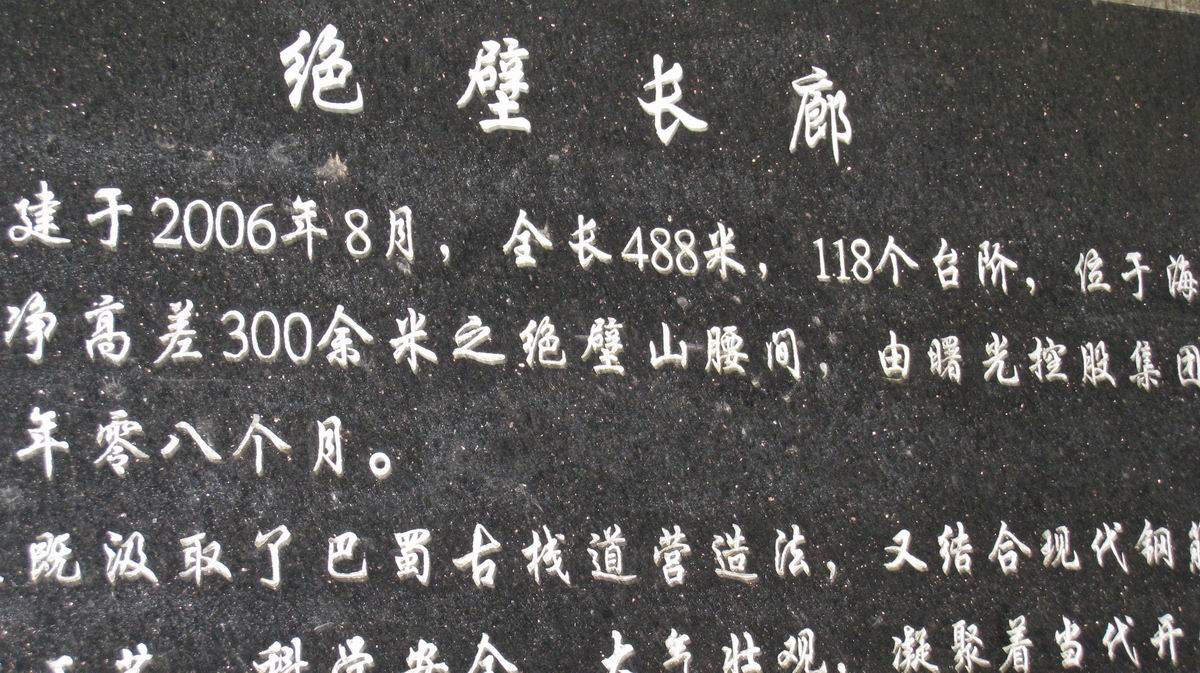 绝壁长廊
建于2006年8月，全长488米，118个台阶，位于海
净高差300余米之绝壁山腰间，由曙光控股集团
年零八个月。
既汲取了巴蜀古栈道营造法，又结合现代钢
工艺，科学安全，大气壮观，凝聚着当代开